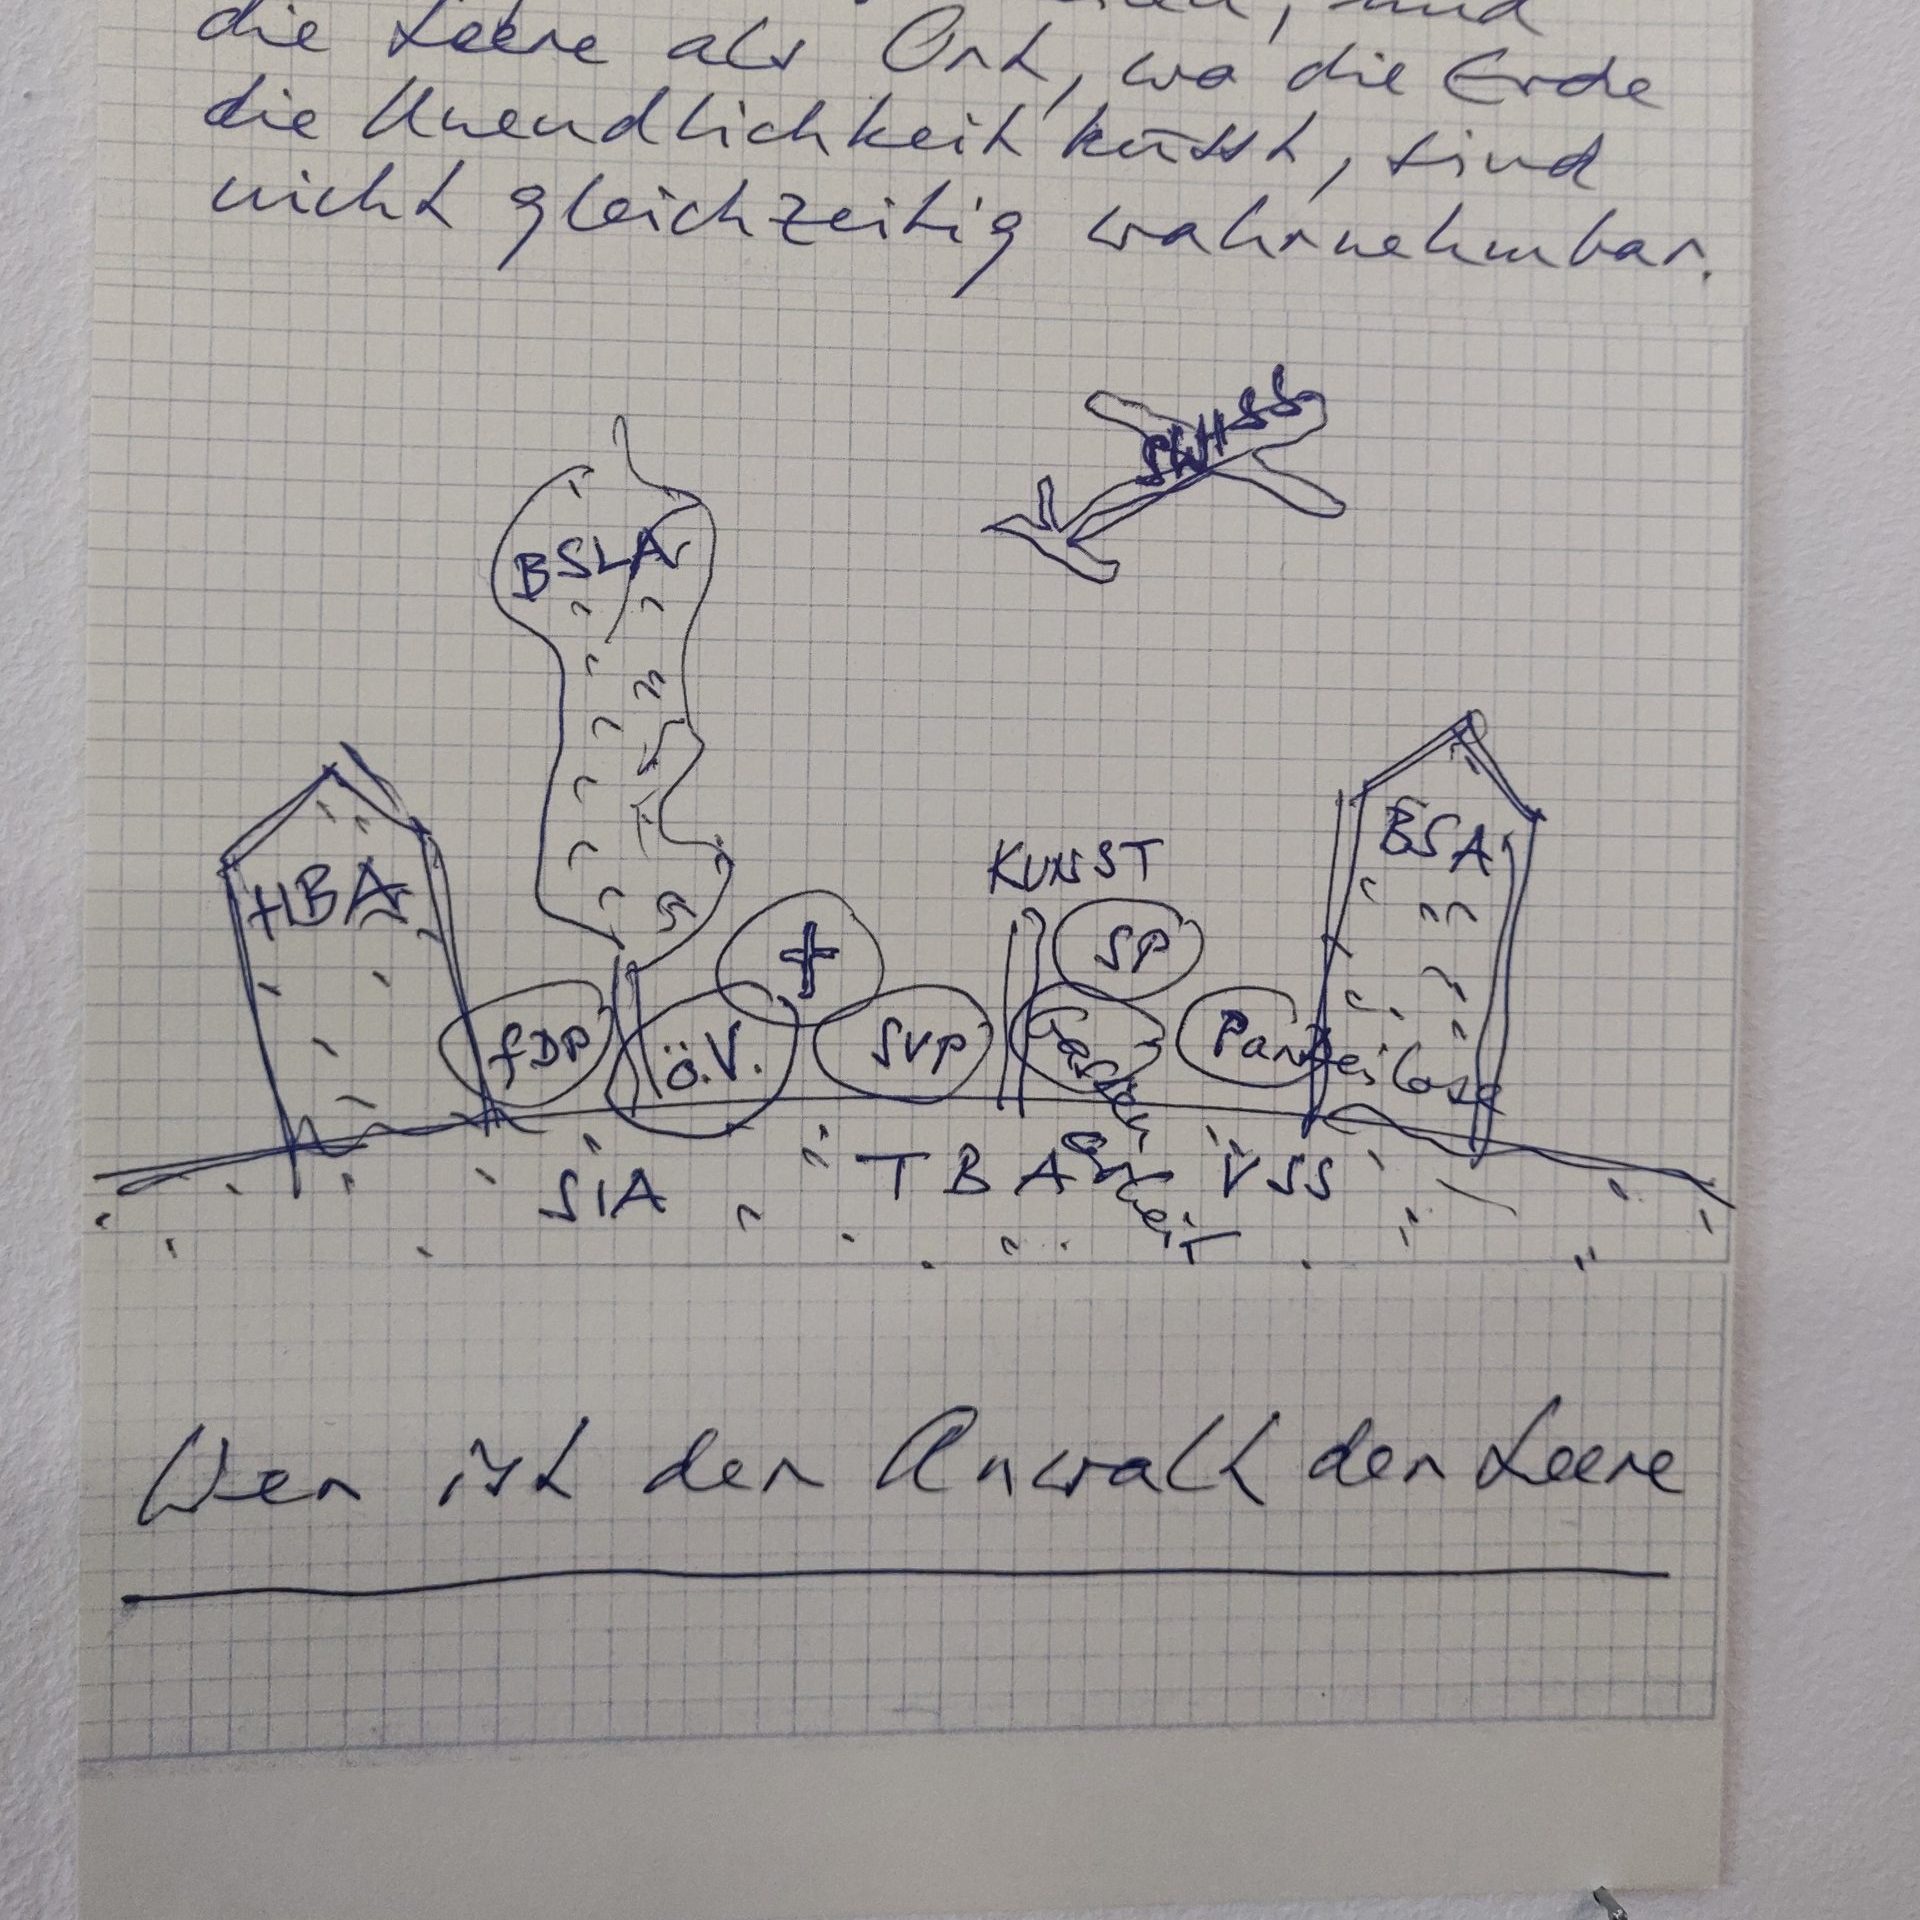 und
die Leere als Ort, wo die Erde
die Unendlichkeit küsst, sind
nicht gleichzeitig wahrnehmbar.
SWISS
BSLA
HBA
KUNST
BSA
SP
FDP
ö.V.
SVP
Gassenarbeit
Parteilose
SIA
TBA
VSS
Wer ist der Anwalt der Leere